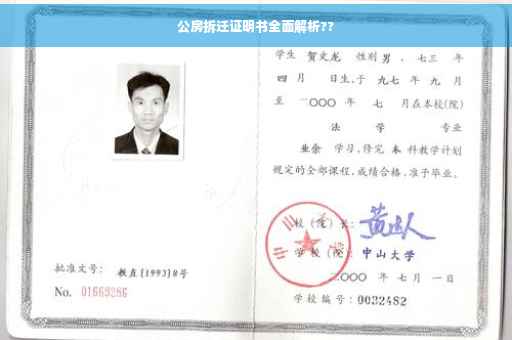 公房拆迁证明书全面解析??
学生 贺文龙 性别 男 、七三 年
四 月 日生,于 九七 年 九 月
至 二〇〇〇 年 七 月在本校(院)
法 学 专业
业余 学习,修完 本 科教学计划
规定的全部课程,成绩合格,准予毕业。
校 (院) 长:
学 校 (院): 中山大学
二〇〇〇 年 七 月 一 日
学校编号: 0032482
批准文号: 教直[1993]8号
No. 01669286